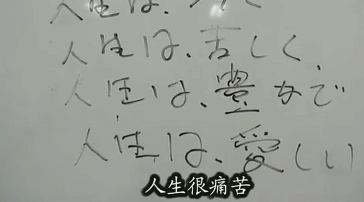 人生は、
人生は、苦しく、
人生は、豊かで
人生は、愛しい
人生很痛苦